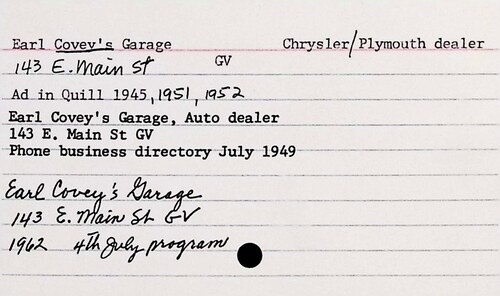 Earl Covey's Garage Chrysler/Plymouth dealer
143 E. Main St GV
Ad in Quill 1945, 1951, 1952
Earl Covey's Garage, Auto dealer
143 E. Main St GV
Phone business directory July 1949
Earl Covey's Garage
143 E. Main St GV
1962 4th July program